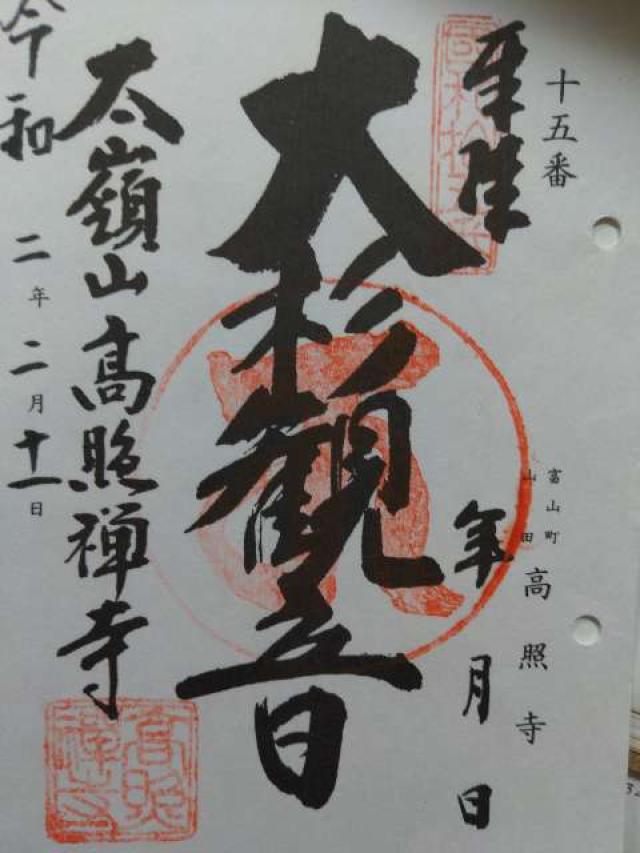 十五番
富山町
山田
高照寺
奉拝
年月日
大杉観音
太嶺山高照禅寺
令和二年二月十一日